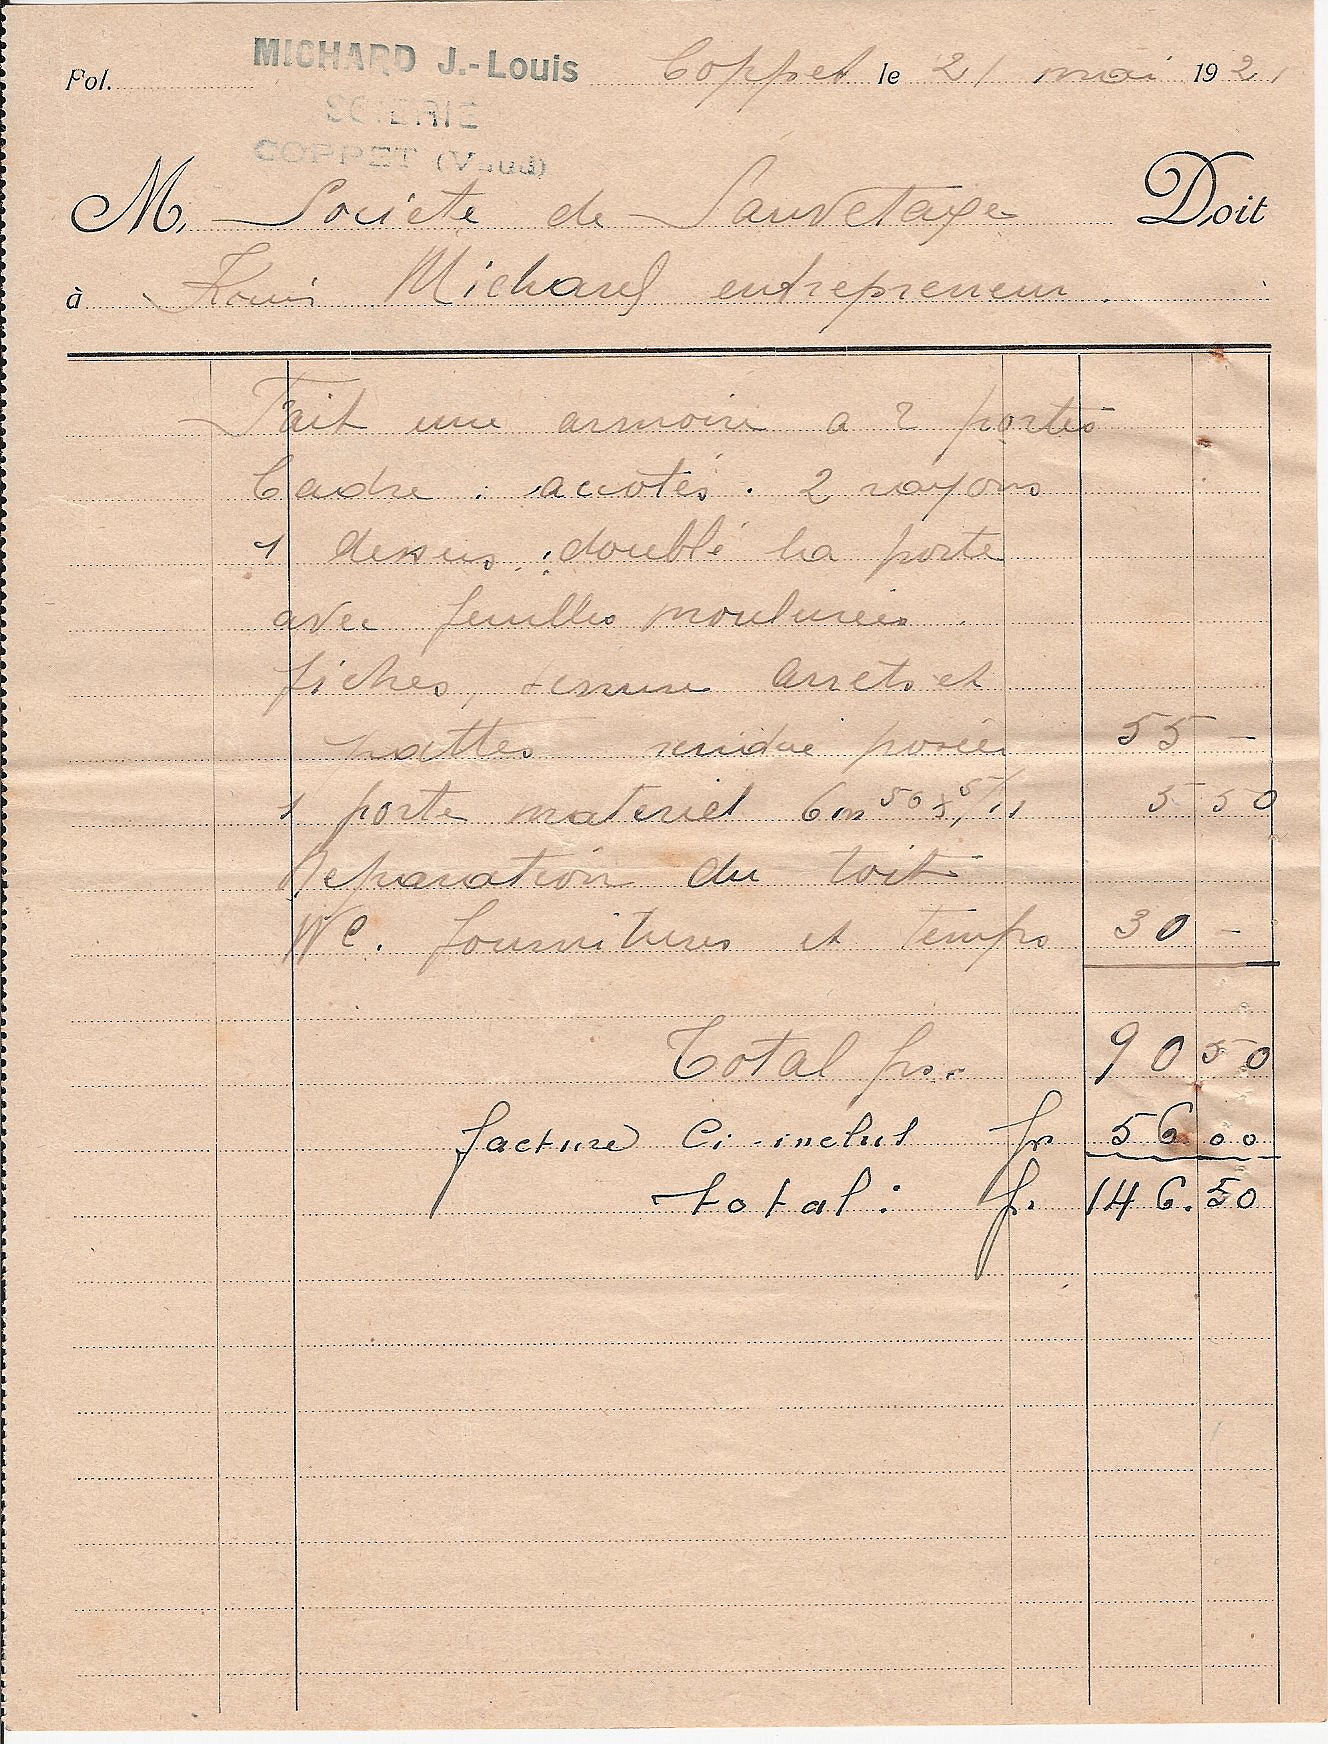 MICHARD J.-Louis
SCIERIE
COPPET (Vaud)
Pol. Coppet le 21 mai 1921
M. Societe de Sauvetage Doit
à Louis Michard entrepreneur.
Fait une armoire a 2 portes
Cadre. accotés. 2 rayons
1 dessus. doublé la porte
avec feuilles moulurées.
fiches, arrets et
pattes rendue posée 55 -
1 porte materiel 6m 50 5 50
Reparation du toit
WC. fournitures et temps 30 -
Total frs. 90 50
facture Ci-inclut fr 56 00
total: fr. 146.50